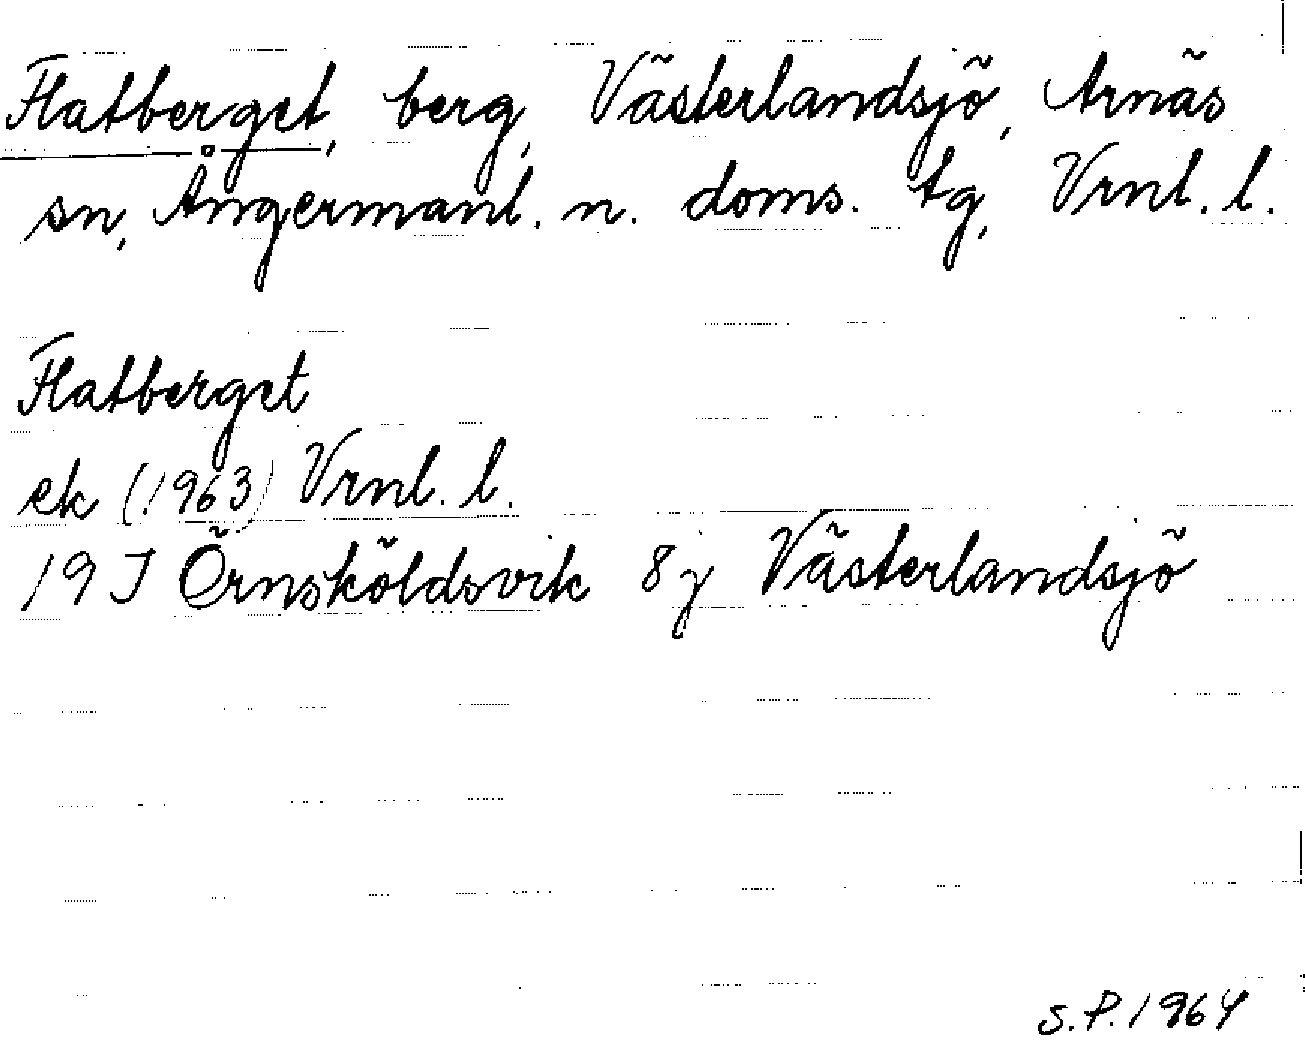 Flatberget, berg, Västerlandsjö, Arnäs
sn, Ångermanl. n. doms. tg, Vrnl. l.
Flatberget
ek (1963) Vrnl. l.
19 J Örnsköldsvik 8 j Västerlandsjö
S.P. 1964